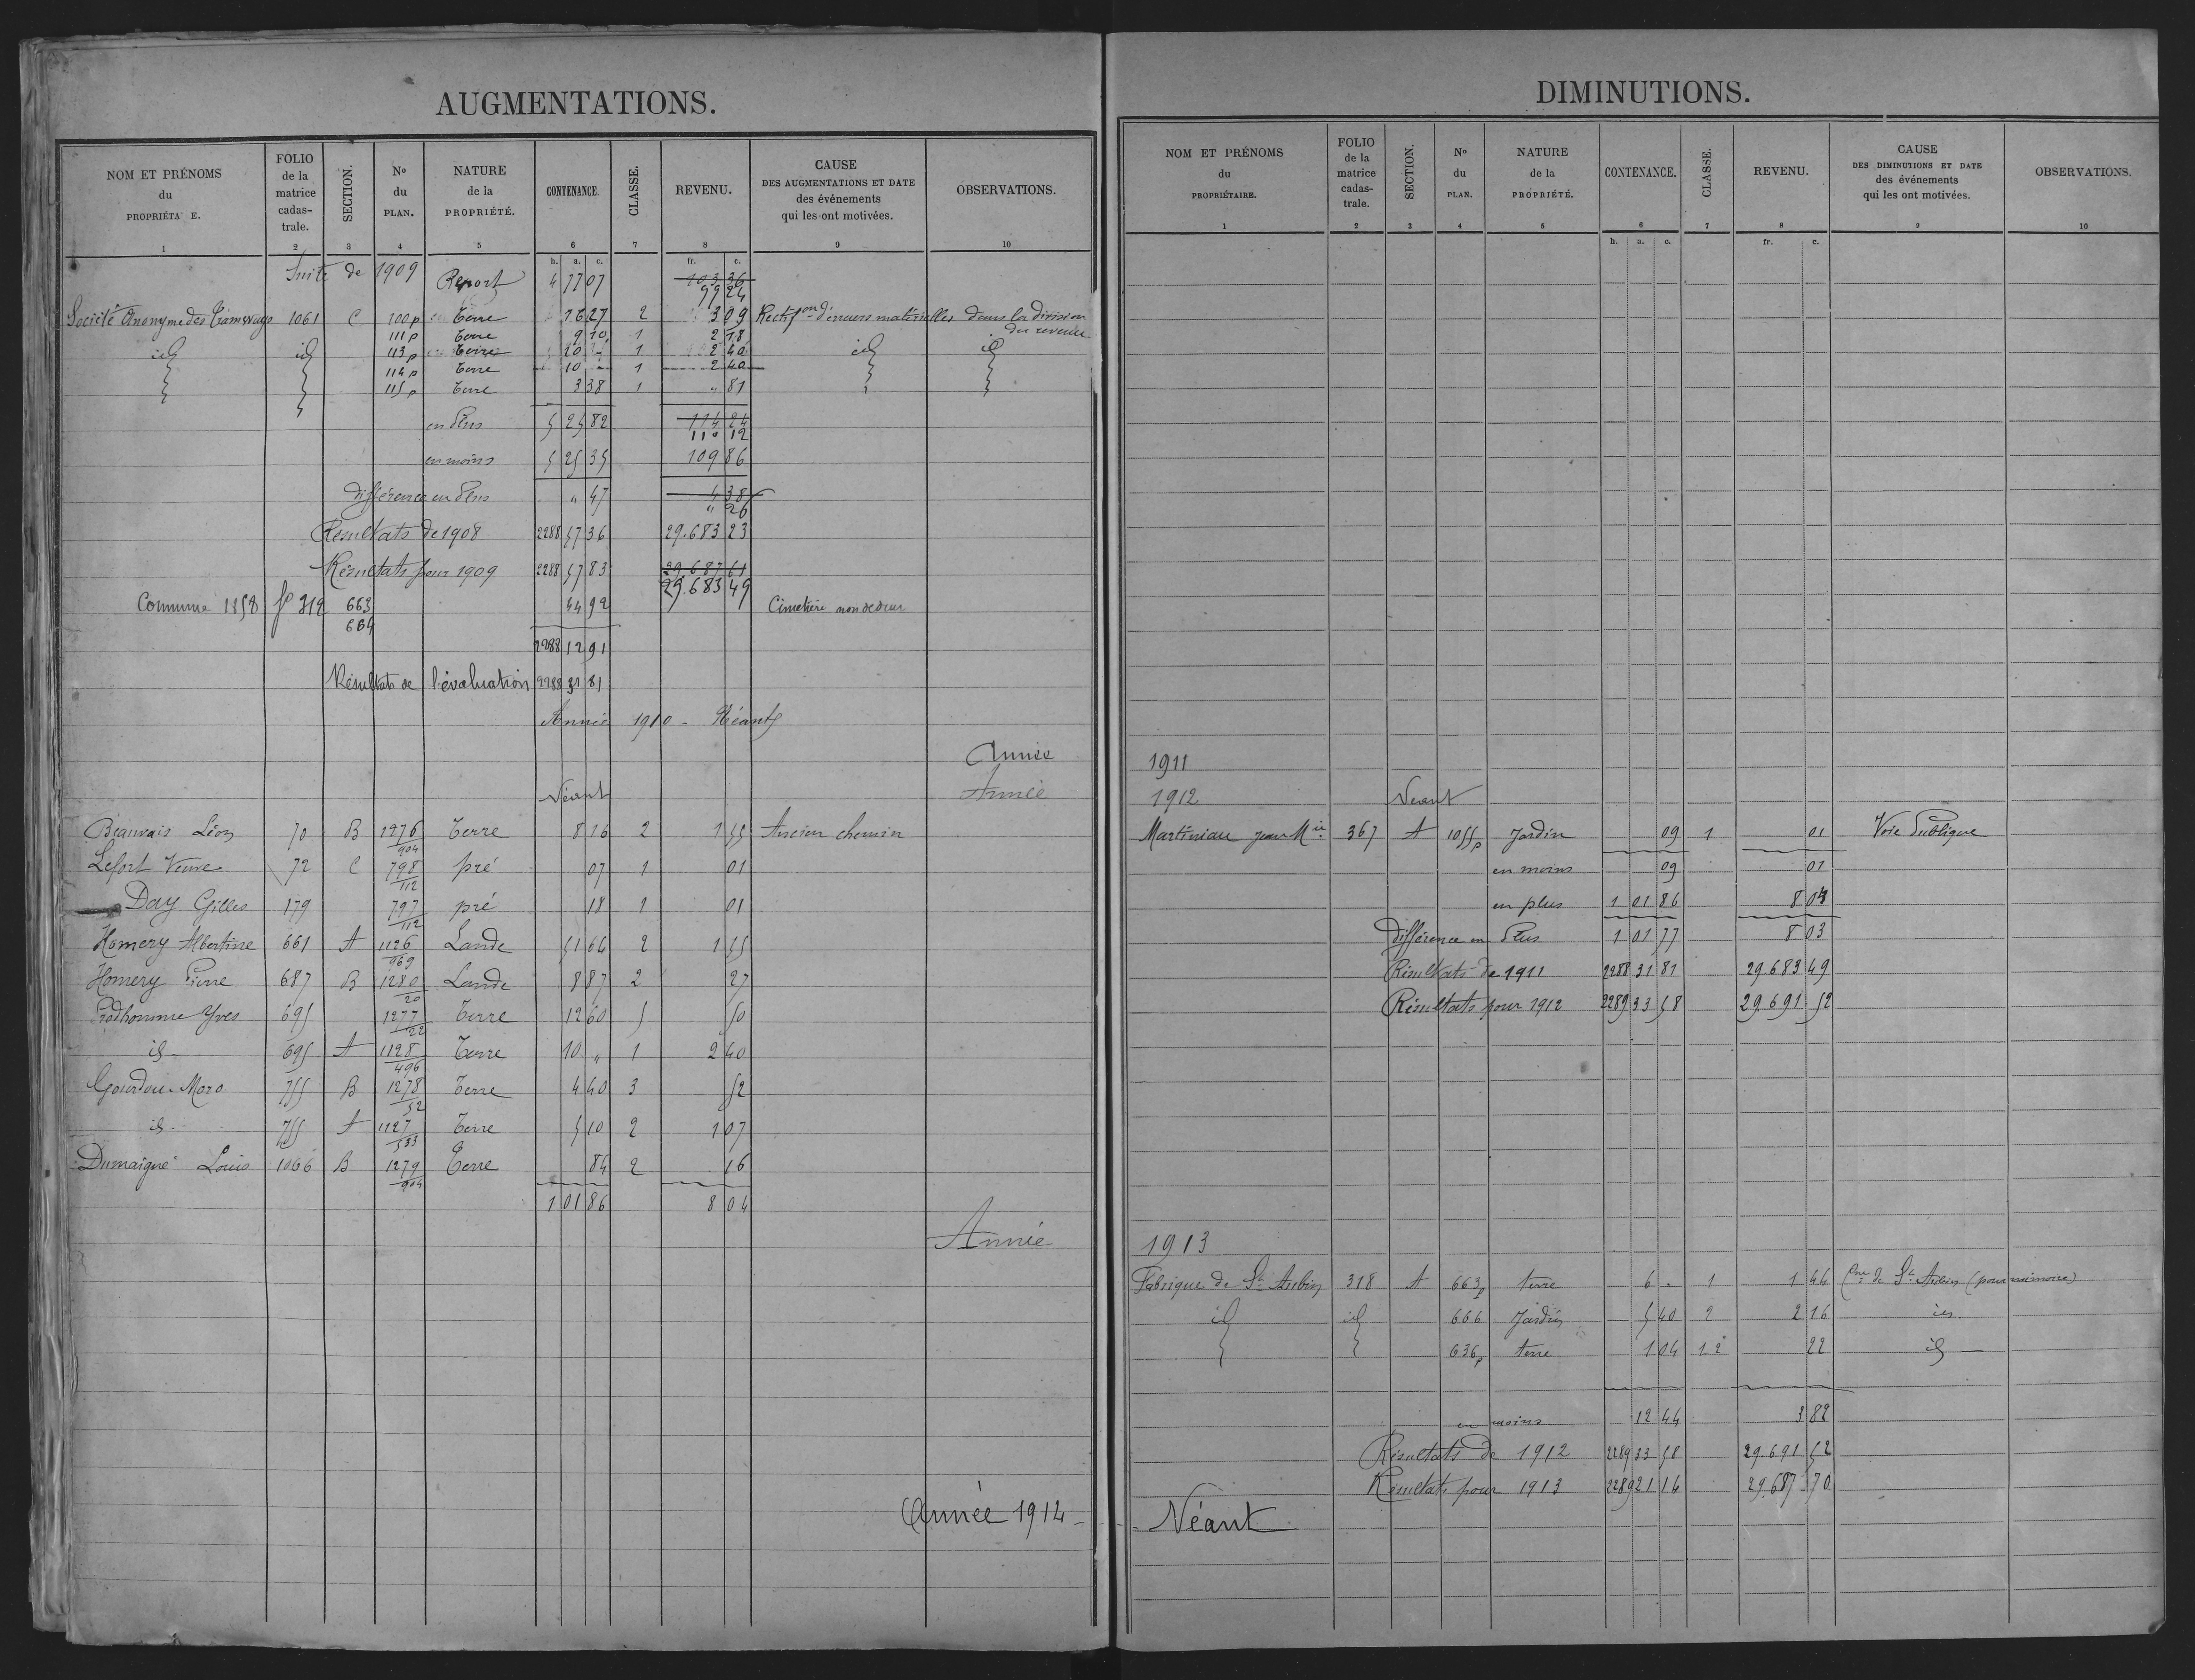 AUGMENTATIONS.
NOM ET PRÉNOMS du PROPRIÉTA E. | FOLIO de la matrice cadas-trale. | SECTION. | No du PLAN. | NATURE de la PROPRIÉTÉ. | CONTENANCE. | CLASSE. | REVENU. | CAUSE DES AUGMENTATIONS ET DATE des événements qui les ont motivées. | OBSERVATIONS.
1 2 3 4 5 6 7 8 9 10
h. a. c. fr. c.
Suite de 1909 Report 4 77 07 103 36
99 24
Société Anonyme des Tramways 1061 C 100p Terre 16 27 2 3 09 Rectifon d'erreurs matérielles dans la division
111p Terre 9 10 1 2 18 du revenu
id id 113p Terre 20 1 2 40 id id
114p Terre 10 - 1 2 40
115p Terre 3 38 1 " 81
en Plus 5 25 82 114 24
110 12
en moins 5 25 35 109 86
Différence en Plus " 47 4 38
" 26
Résultats de 1908 2288 57 36 29.683 23
Résultats pour 1909 2288 57 83 29.687 61
29.683 49
Commune 1858 fo 312 663 44 92 Cimetière
664
2288 12 91
Résultats de l'évaluation 2288 31 81
Année 1910 - Néant
Année
Néant Année
Beauvais Léon 70 B 1276 Terre 8 16 2 1 55 Ancien chemin
904
Lefort Veuve 72 C 798 pré 07 1 01
112
Day Gilles 179 797 pré 18 1 01
112
Homery Albertine 661 A 1126 Lande 51 64 2 1 55
969
Homery Pierre 687 B 1280 Lande 8 87 2 27
20
Prodhomme Yves 695 1277 Terre 12 60 5 50
22
id - 695 A 1128 Terre 10 " 1 2 40
496
Gourdou-Moro 755 B 1278 Terre 4 40 3 52
52
id - 755 A 1127 Terre 5 10 2 1 07
533
Dumaigné Louis 1066 B 1279 Terre 84 2 16
904
1 01 86 8 04
Année
Année 1914 -
DIMINUTIONS.
NOM ET PRÉNOMS du PROPRIÉTAIRE. | FOLIO de la matrice cadas-trale. | SECTION. | No du PLAN. | NATURE de la PROPRIÉTÉ. | CONTENANCE. | CLASSE. | REVENU. | CAUSE DES DIMINUTIONS ET DATE des événements qui les ont motivées. | OBSERVATIONS.
1 2 3 4 5 6 7 8 9 10
h. a. c. fr. c.
1911
1912 Néant
Martiniau Jean Mie 367 A 1055p Jardin 09 1 01 Voie Publique
en moins 09 01
en plus 1 01 86 8 04
Différence en Plus 1 01 77 8 03
Résultats de 1911 2288 31 81 29.683 49
Résultats pour 1912 2289 33 58 29.691 52
1913
Fabrique de St Aubin 318 A 663p terre 6 - 1 1 44 Cne de St Aubin (pour mémoire)
id id 666 Jardin 5 40 2 2 16 id
636p terre 1 04 12 22 id
en moins 12 44 3 82
Résultats de 1912 2289 33 58 29.691 52
Résultats pour 1913 2289 21 16 29.687 70
- Néant